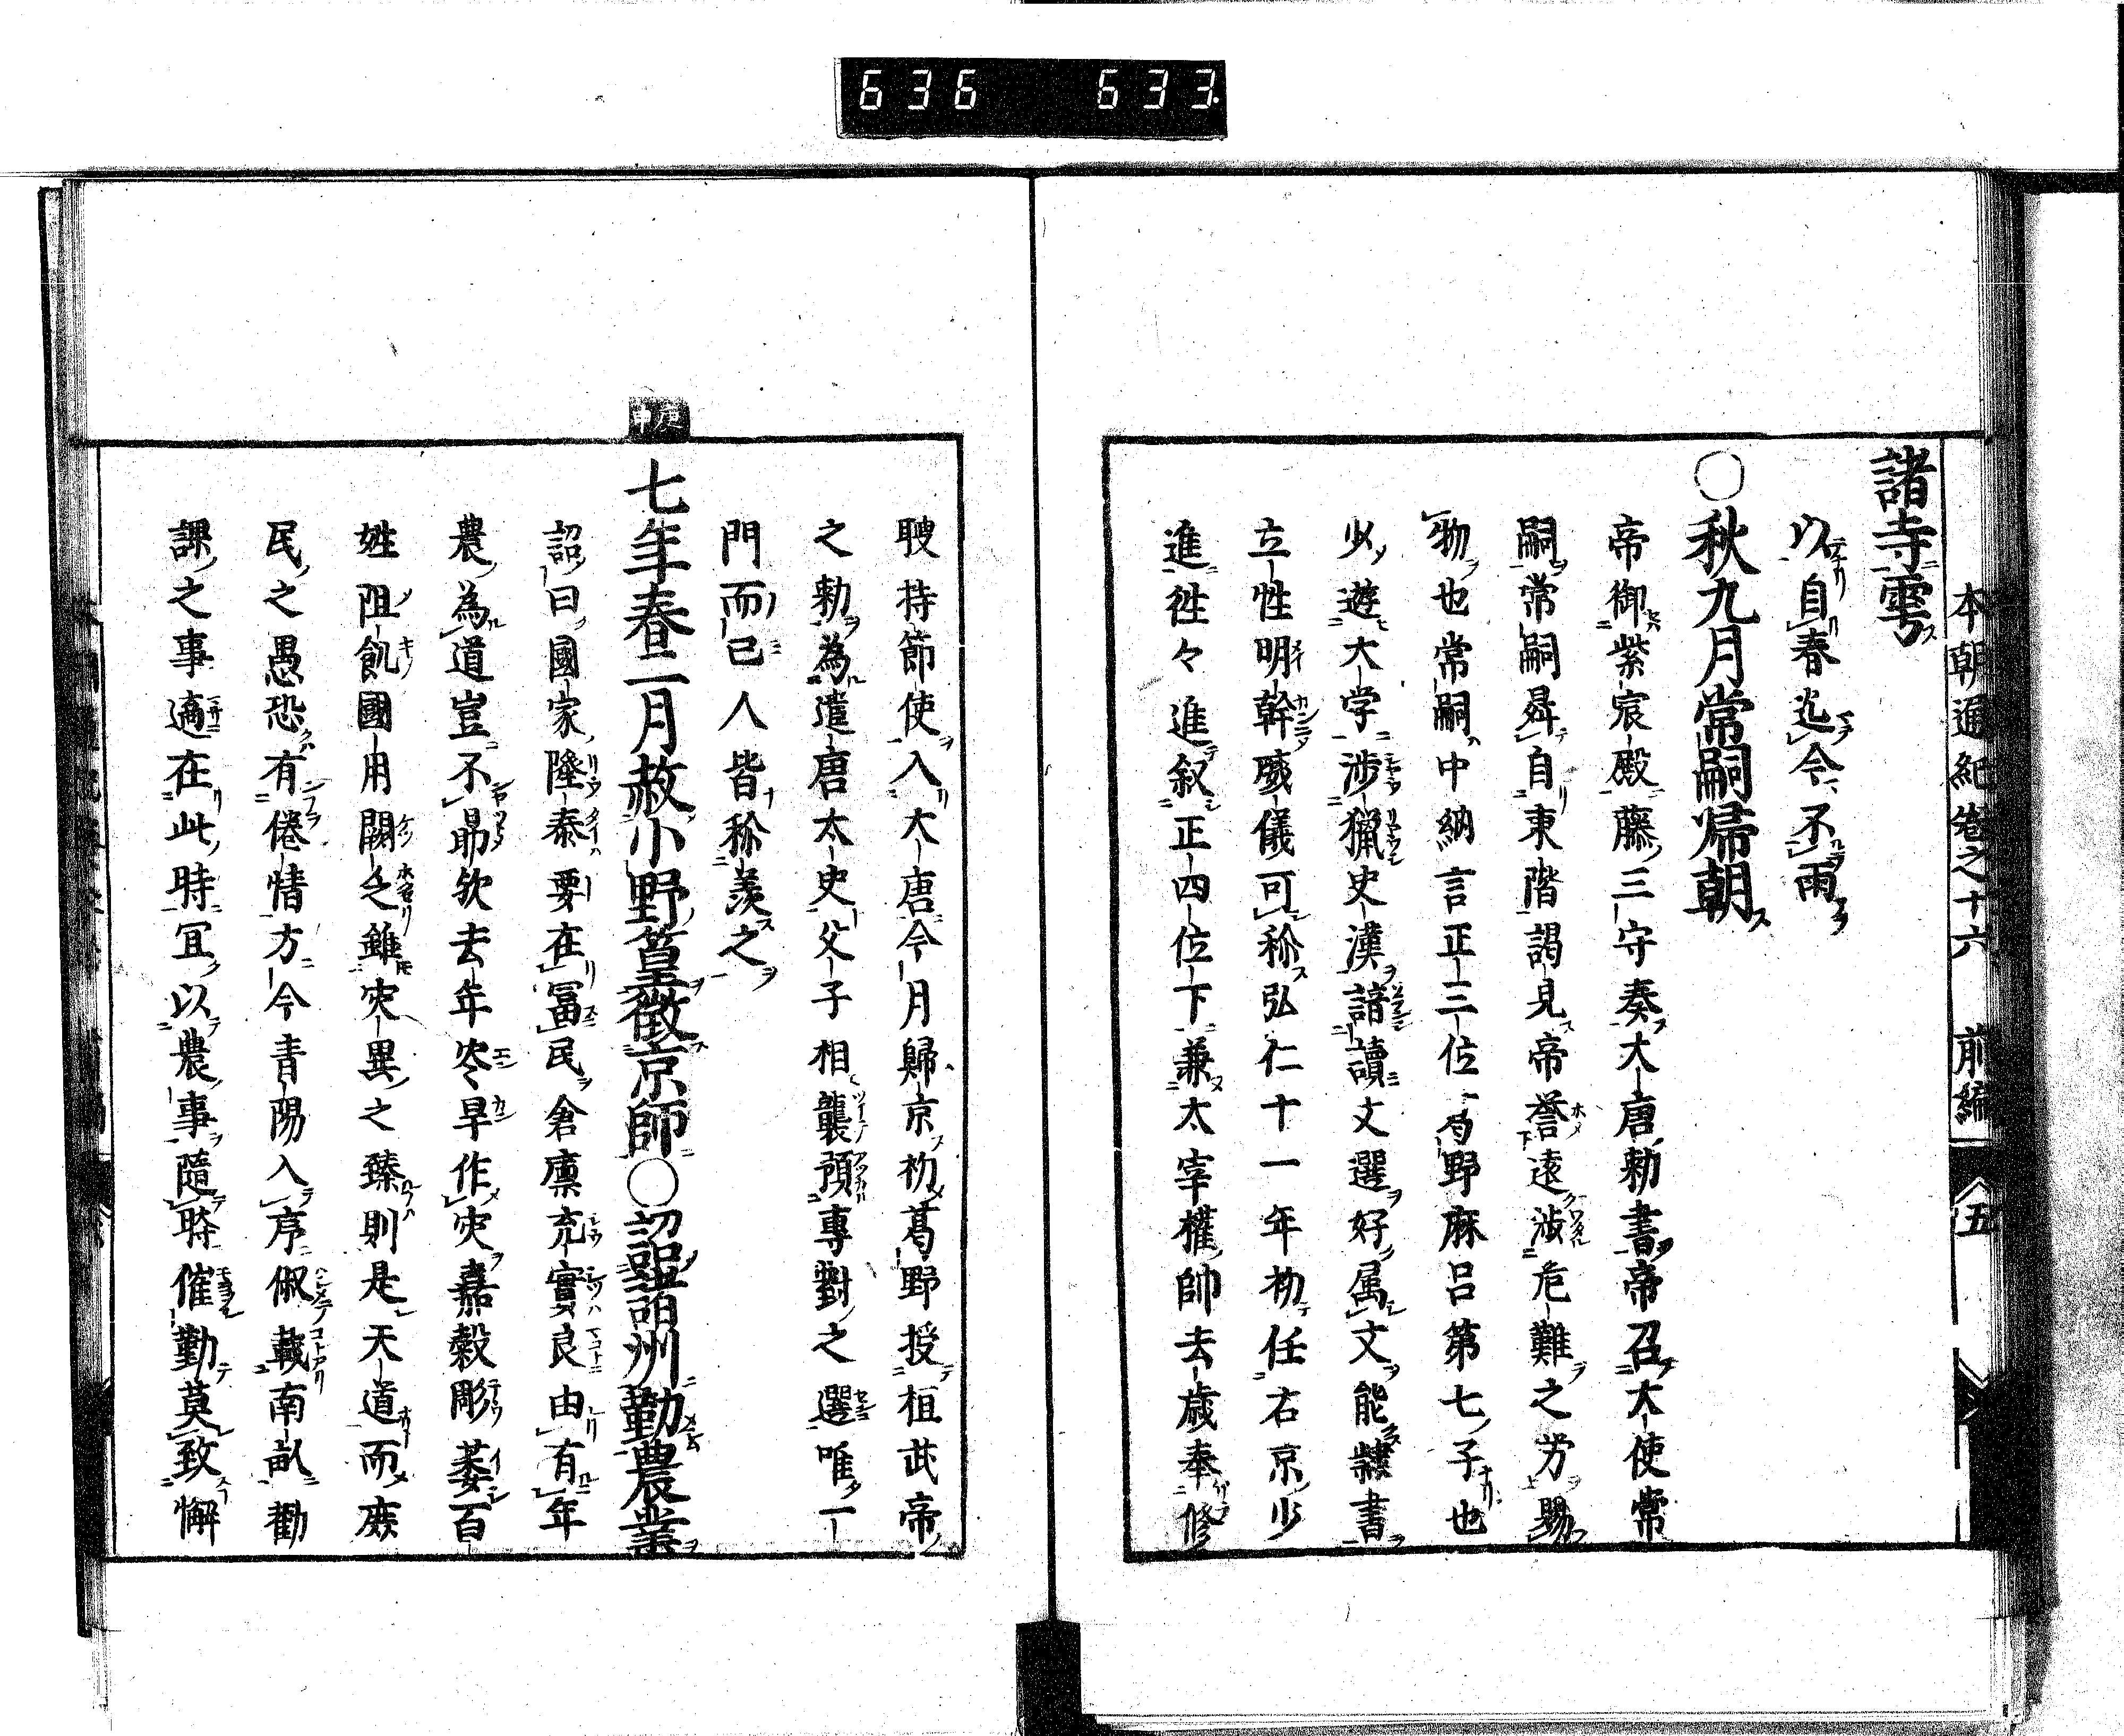 636 633
本朝通紀卷之十六 前編 五
諸寺雩
以自春迄今不雨
○秋九月常嗣帰朝
帝御紫宸殿藤三守奏大唐勅書帝召大使常
嗣常嗣昇自東階謁見帝誉遠渉危難之労賜
物也常嗣中納言正三位葛野麻呂第七子也
少遊大学渉猟史漢諳讀文選好属文能隷書
立性明幹威儀可称弘仁十一年初任右京少
進徃々進叙正四位下兼太宰權帥去歳奉修
聘持節使入大唐今月歸京初葛野授桓武帝
之勅為遣唐大使父子相襲預專對之選唯一
門而已人皆称羨之
庚申
七年春二月赦小野篁徴京師○詔諸州勤農業
詔曰國家隆泰要在冨民倉廪充實良由有年
農為道豈不勗欤去年炎旱作灾嘉穀彫萎百
姓阻飢國用闕乏雖灾異之臻則是天道而庶
民之愚恐有倦惰方今青陽入序俶載南畝勸
課之事適在此時冝以農事隨時催勤莫致懈